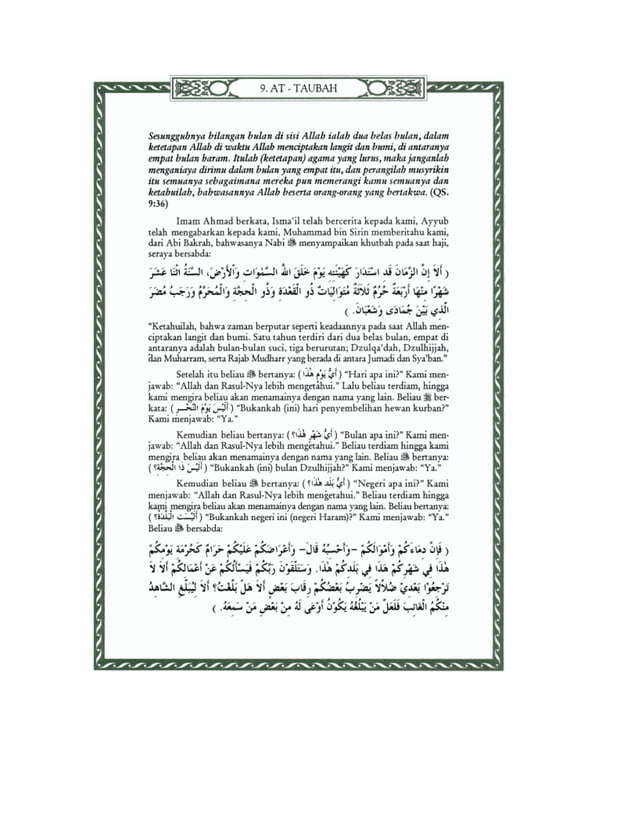 9. AT - TAUBAH
Sesungguhnya bilangan bulan di sisi Allah ialah dua belas bulan, dalam
ketetapan Allah di waktu Allah menciptakan langit dan bumi, di antaranya
empat bulan haram. Itulah (ketetapan) agama yang lurus, maka janganlah
menganiaya dirimu dalam bulan yang empat itu, dan perangilah musyrikin
itu semuanya sebagaimana mereka pun memerangi kamu semuanya dan
ketahuilah, bahwasannya Allah beserta orang-orang yang bertakwa. (QS.
9:36)
Imam Ahmad berkata, Isma'il telah bercerita kepada kami, Ayyub
telah mengabarkan kepada kami, Muhammad bin Sirin memberitahu kami,
dari Abi Bakrah, bahwasanya Nabi ﷺ menyampaikan khutbah pada saat haji,
seraya bersabda:
( أَلاَ إِنَّ الزَّمَانَ قَدِ اسْتَدَارَ كَهَيْئَتِهِ يَوْمَ خَلَقَ اللهُ السَّمٰوَاتِ وَالْأَرْضَ، السَّنَةُ اثْنَا عَشَرَ
شَهْرًا مِنْهَا أَرْبَعَةٌ حُرُمٌ ثَلاَثَةٌ مُتَوَالِيَاتٌ ذُو الْقَعْدَةِ وَذُو الْحِجَّةِ وَالْمُحَرَّمُ وَرَجَبُ مُضَرَ
الَّذِي بَيْنَ جُمَادَى وَشَعْبَانَ. )
"Ketahuilah, bahwa zaman berputar seperti keadaannya pada saat Allah men-
ciptakan langit dan bumi. Satu tahun terdiri dari dua belas bulan, empat di
antaranya adalah bulan-bulan suci, tiga berurutan; Dzulqa'dah, Dzulhijjah,
dan Muharram, serta Rajab Mudharr yang berada di antara Jumadi dan Sya'ban."
Setelah itu beliau ﷺ bertanya: ( أَيُّ يَوْمٍ هٰذَا ) "Hari apa ini?" Kami men-
jawab: "Allah dan Rasul-Nya lebih mengetahui." Lalu beliau terdiam, hingga
kami mengira beliau akan menamainya dengan nama yang lain. Beliau ﷺ ber-
kata: ( أَلَيْسَ يَوْمَ النَّحْرِ ) "Bukankah (ini) hari penyembelihan hewan kurban?"
Kami menjawab: "Ya."
Kemudian beliau bertanya: ( أَيُّ شَهْرٍ هٰذَا؟ ) "Bulan apa ini?" Kami men-
jawab: "Allah dan Rasul-Nya lebih mengetahui." Beliau terdiam hingga kami
mengira beliau akan menamainya dengan nama yang lain. Beliau ﷺ bertanya:
( أَلَيْسَ ذَا الْحِجَّةِ؟ ) "Bukankah (ini) bulan Dzulhijjah?" Kami menjawab: "Ya."
Kemudian beliau ﷺ bertanya: ( أَيُّ بَلَدٍ هٰذَا؟ ) "Negeri apa ini?" Kami
menjawab: "Allah dan Rasul-Nya lebih mengetahui." Beliau terdiam hingga
kami mengira beliau akan menamainya dengan nama yang lain. Beliau bertanya:
( أَلَيْسَتِ الْبَلْدَةَ؟ ) "Bukankah negeri ini (negeri Haram)?" Kami menjawab: "Ya."
Beliau ﷺ bersabda:
( فَإِنَّ دِمَاءَكُمْ وَأَمْوَالَكُمْ –وَأَحْسِبُهُ قَالَ– وَأَعْرَاضَكُمْ عَلَيْكُمْ حَرَامٌ كَحُرْمَةِ يَوْمِكُمْ
هٰذَا فِي شَهْرِكُمْ هٰذَا فِي بَلَدِكُمْ هٰذَا. وَسَتَلْقَوْنَ رَبَّكُمْ فَيَسْأَلُكُمْ عَنْ أَعْمَالِكُمْ أَلاَ لاَ
تَرْجِعُوْا بَعْدِيْ ضُلاَّلاً يَضْرِبُ بَعْضُكُمْ رِقَابَ بَعْضٍ أَلاَ هَلْ بَلَّغْتُ؟ أَلاَ لِيُبَلِّغِ الشَّاهِدُ
مِنْكُمُ الْغَائِبَ فَلَعَلَّ مَنْ يَبْلُغُهُ يَكُوْنُ أَوْعَى لَهُ مِنْ بَعْضِ مَنْ سَمِعَهُ. )